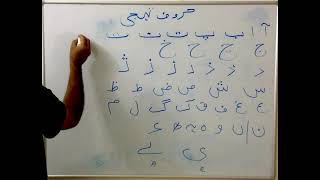 حروف تہجی
آ ا ب پ ت ٹ ث
ج چ ح خ
د ڈ ذ ر ڑ ز ژ
س ش ص ض ط ظ
ع غ ف ق ک گ ل م
ن/ں و ہ ھ ء
ی ے